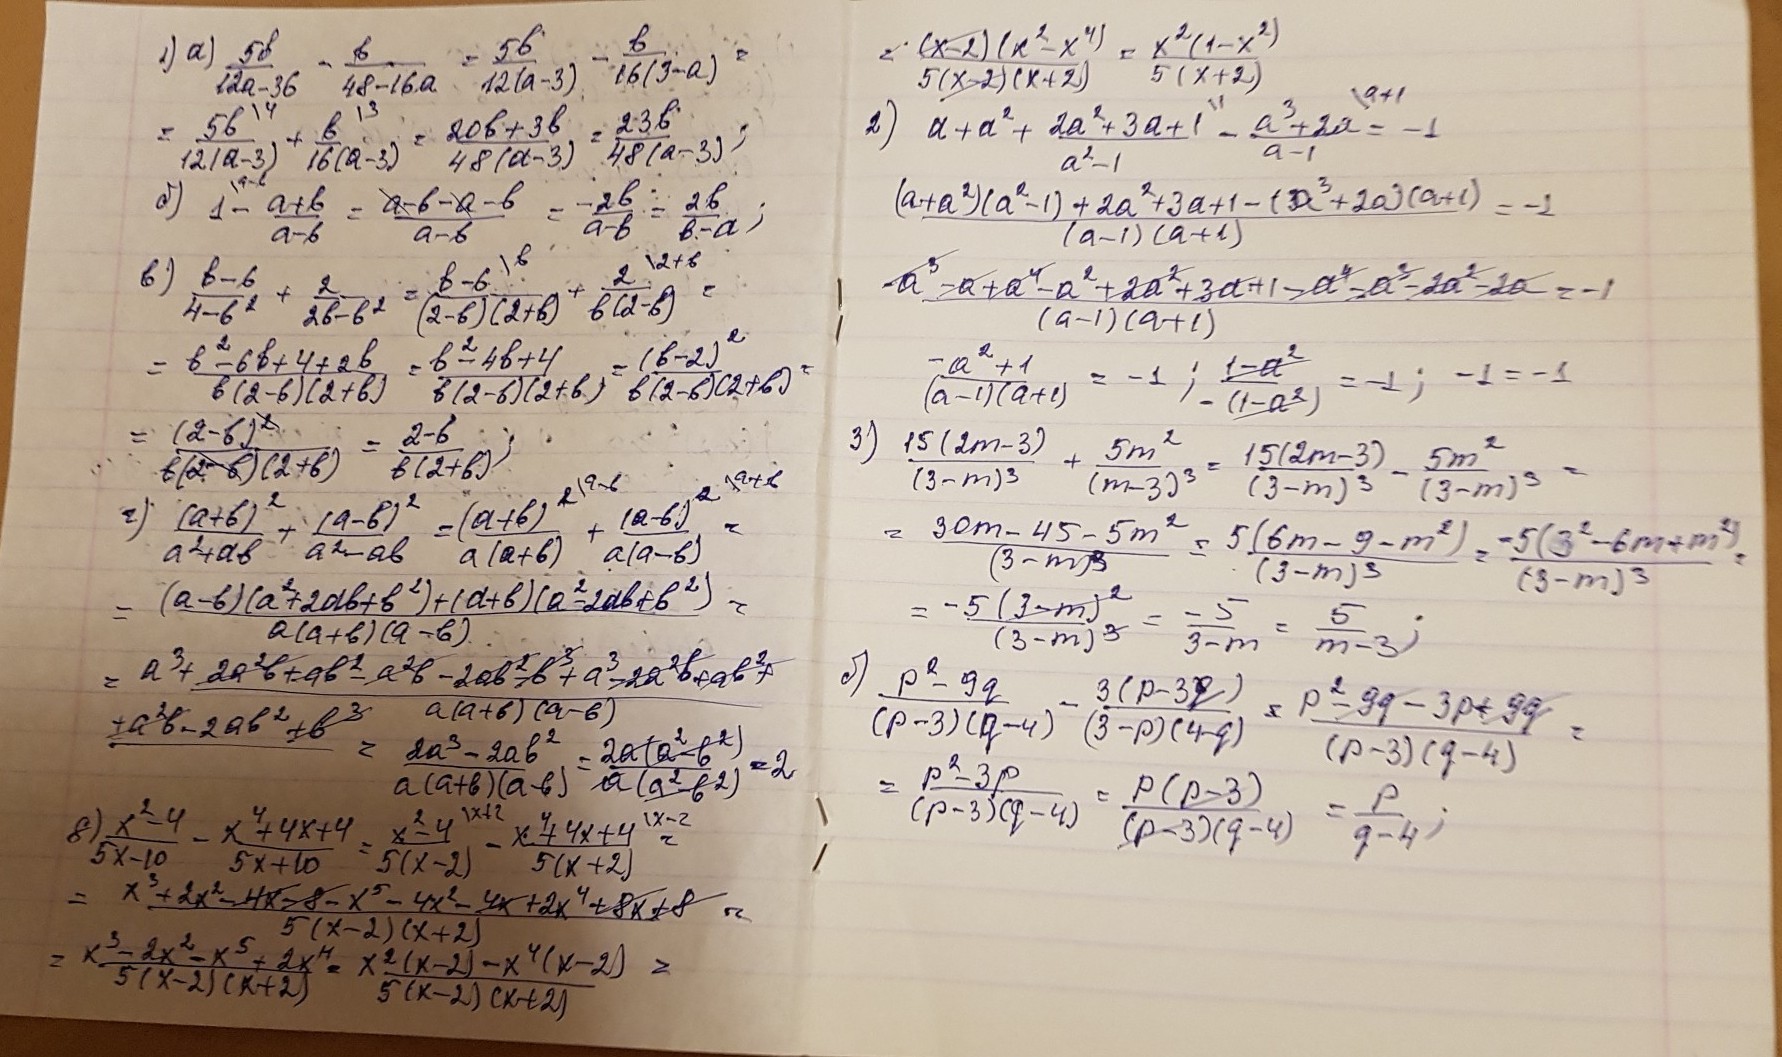 1) а) 5b/(12a-36) - b/(48-16a) = 5b/(12(a-3)) - b/(16(3-a)) =
= 5b\4/(12(a-3)) + b\3/(16(a-3)) = (20b+3b)/(48(a-3)) = 23b/(48(a-3));
б) 1\a-b - (a+b)/(a-b) = (a-b-a-b)/(a-b) = -2b/(a-b) = 2b/(b-a);
в) (b-6)/(4-b²) + 2/(2b-b²) = (b-6)\b/((2-b)(2+b)) + 2\2+b/(b(2-b)) =
= (b²-6b+4+2b)/(b(2-b)(2+b)) = (b²-4b+4)/(b(2-b)(2+b)) = (b-2)²/(b(2-b)(2+b)) =
= (2-b)²/(b(2-b)(2+b)) = (2-b)/(b(2+b));
г) (a+b)²/(a²+ab) + (a-b)²/(a²-ab) = (a+b)²\a-b/(a(a+b)) + (a-b)²\a+b/(a(a-b)) =
= ((a-b)(a²+2ab+b²)+(a+b)(a²-2ab+b²))/(a(a+b)(a-b)) =
= a³+2a²b+ab²-a²b-2ab²-b³+a³-2a²b+ab²+
+a²b-2ab²+b³/(a(a+b)(a-b)) = (2a³-2ab²)/(a(a+b)(a-b)) = 2a(a²-b²)/(a(a²-b²)) = 2
д) (x²-4)/(5x-10) - (x⁴+4x+4)/(5x+10) = (x²-4)\x+2/(5(x-2)) - (x⁴+4x+4)\x-2/(5(x+2)) =
= (x³+2x²-4x-8-x⁵-4x²-4x+2x⁴+8x+8)/(5(x-2)(x+2)) =
= (x³-2x²-x⁵+2x⁴)/(5(x-2)(x+2)) = (x²(x-2)-x⁴(x-2))/(5(x-2)(x+2)) =
= (x-2)(x²-x⁴)/(5(x-2)(x+2)) = x²(1-x²)/(5(x+2))
2) a+a²+ (2a²+3a+1)\1/(a²-1) - (a³+2a)\a+1/(a-1) = -1
((a+a²)(a²-1)+2a²+3a+1-(a³+2a)(a+1))/((a-1)(a+1)) = -1
(a³-a+a⁴-a²+2a²+3a+1-a⁴-a³-2a²-2a)/((a-1)(a+1)) = -1
(-a²+1)/((a-1)(a+1)) = -1; (1-a²)/(-(1-a²)) = -1; -1=-1
3) 15(2m-3)/(3-m)³ + 5m²/(m-3)³ = 15(2m-3)/(3-m)³ - 5m²/(3-m)³ =
= (30m-45-5m²)/(3-m)³ = 5(6m-9-m²)/(3-m)³ = -5(3²-6m+m²)/(3-m)³ =
= -5(3-m)²/(3-m)³ = -5/(3-m) = 5/(m-3);
б) (p²-9q)/((p-3)(q-4)) - 3(p-3q)/((3-p)(4-q)) = (p²-9q-3p+9q)/((p-3)(q-4)) =
= (p²-3p)/((p-3)(q-4)) = p(p-3)/((p-3)(q-4)) = p/(q-4);